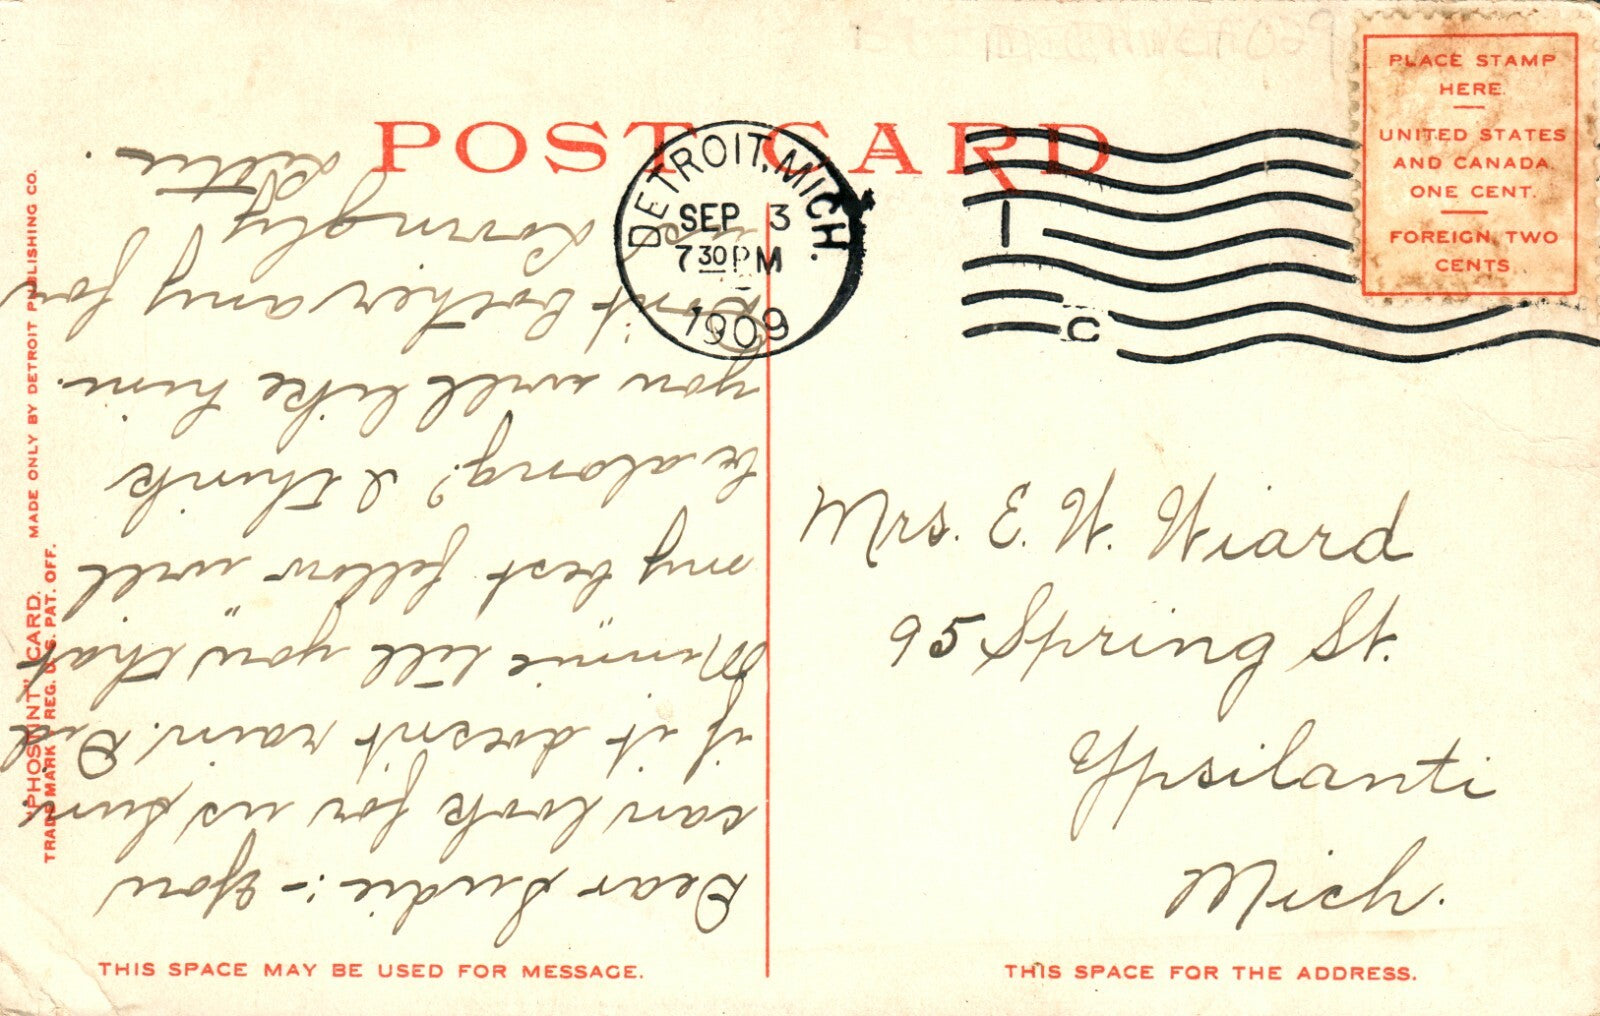 POST CARD
PLACE STAMP
HERE.
UNITED STATES
AND CANADA.
ONE CENT.
FOREIGN, TWO
CENTS
DETROIT, MICH.
SEP 3
7 30 PM
1909
1
C
Mrs. E. W. Wiard
95 Spring St.
Ypsilanti
Mich.
Dear Sudie:- You
can look for us Sun
if it doesn't rain. Did
Minnie tell "you" that
my best fellow will
be along? I think
you will like him.
Don't bother any for
us
Lovingly
Lottie.
"PHOSTINT" CARD. MADE ONLY BY DETROIT PUBLISHING CO.
TRADE MARK REG. U.S. PAT. OFF.
THIS SPACE MAY BE USED FOR MESSAGE.
THIS SPACE FOR THE ADDRESS.